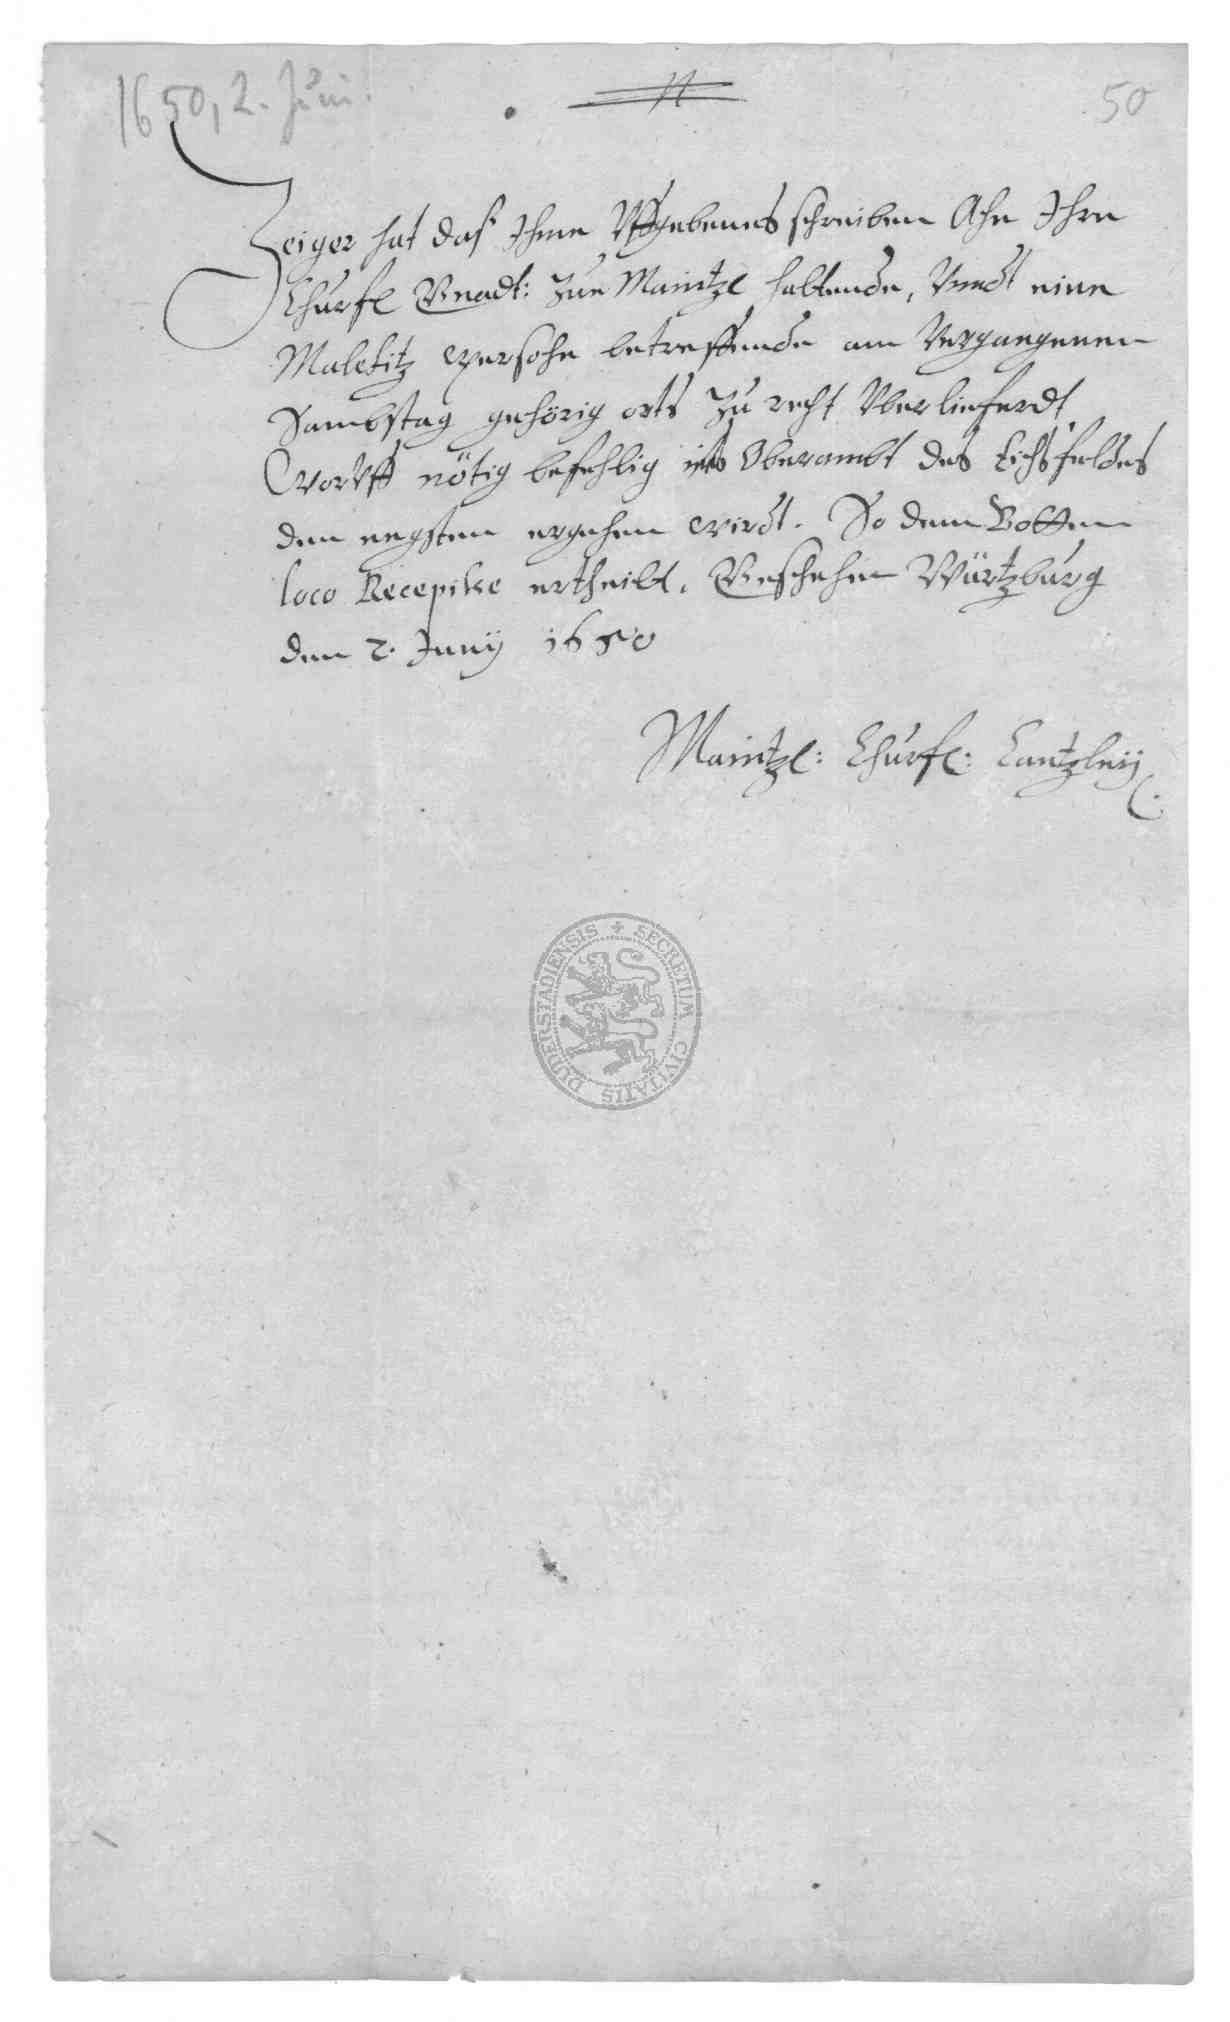 1650, 2. Juni.
50
Zeiger hat daß Ihme Vffgebenes schreiben Ahn Ihre
Churfl Gnadt: Zue Maintz haltende, Vnndt eine
Malefitz persohn betreffende am Vergangenen
Sambstag gehörig orts Zu recht Vberlieferdt
Worvff nötig befehlig ins Oberambt des Eichsfeldes
den negsten ergehen wirdt. So dem Botten
loco Recepisse ertheilt. Geschehen Würtzburg
den 2. Junij 1650
Maintzl: Churfl: Cantzleij
SECRETUM CIVITATIS DUDERSTADIENSIS